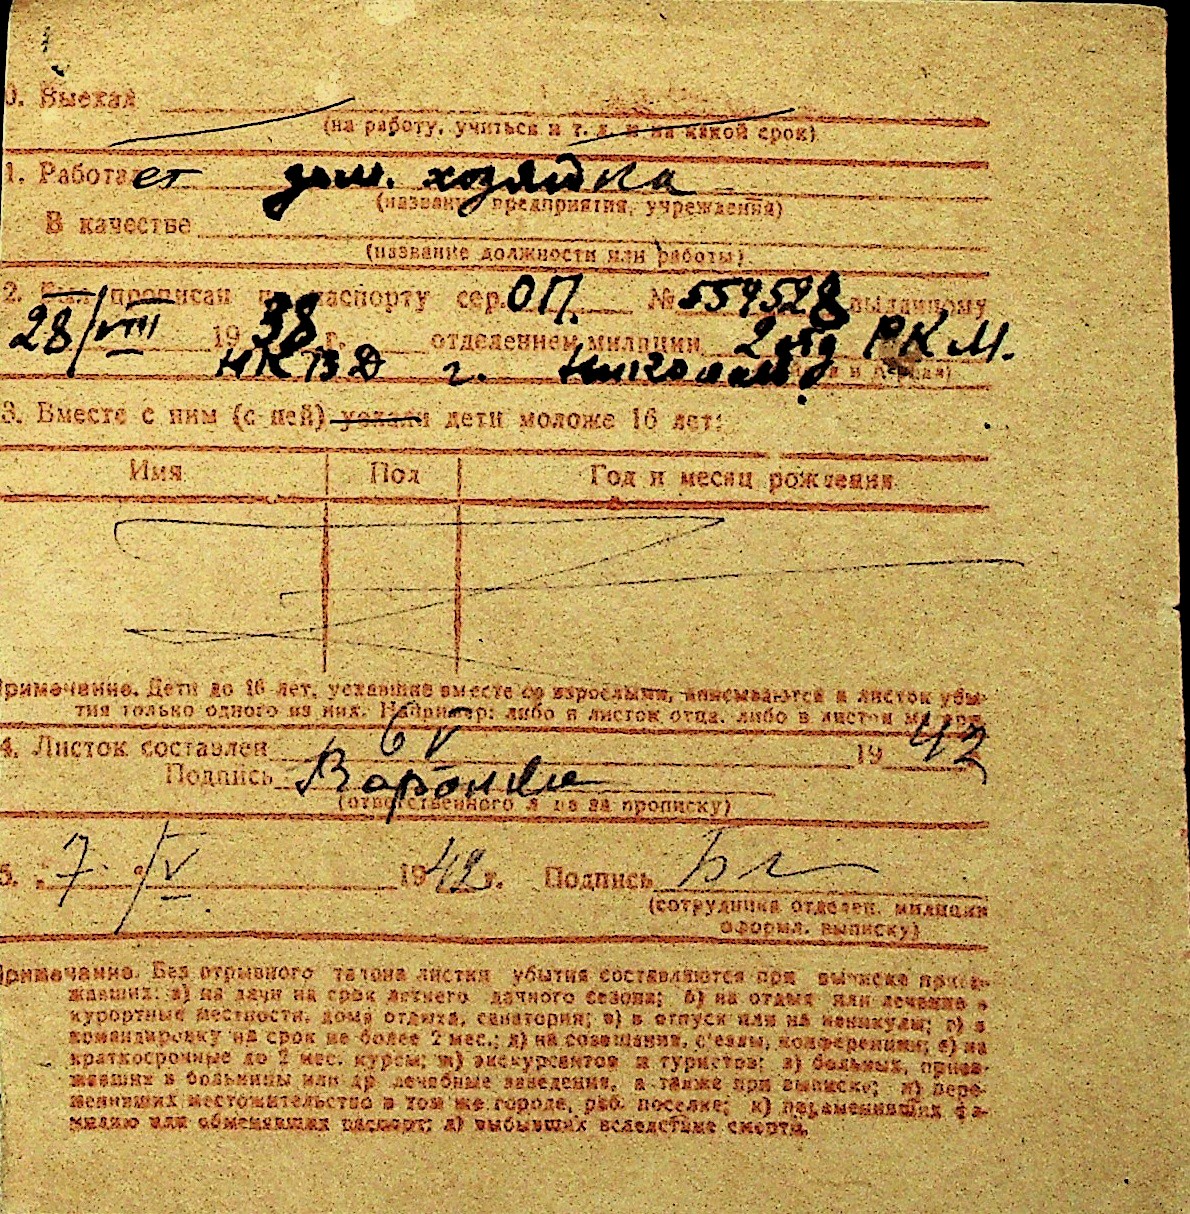 0. Выехал
(на работу, учиться и т. д. и на какой срок)
1. Работает дом. хозяйка
(название предприятия, учреждения)
В качестве
(название должности или работы)
2. Был прописан по паспорту сер. ОП. № 559528 выданному
28/VIII 1938 г. отделением милиции 2 отд РКМ.
НКВД г.
3. Вместе с ним (с ней) уехали дети моложе 16 лет:
Имя Пол Год и месяц рождения
Примечание. Дети до 16 лет, уехавшие вместе со взрослыми, вписываются в листок убы-
тия только одного из них. Например: либо в листок отца, либо в листок матери.
4. Листок составлен 6 V 1942
Подпись
(ответственного лица за прописку)
5. "7" V 1942 г. Подпись
(сотрудника отделен. милиции
оформл. выписку)
Примечание. Без отрывного талона листки убытия составляются при выписке приез-
жавших: а) на дачи на срок летнего дачного сезона; б) на отдых или лечение в
курортные местности, дома отдыха, санатория; в) в отпуск или на каникулы; г) в
командировку на срок не более 2 мес.; д) на совещания, с'езды, конференции; е) на
краткосрочные до 2 мес. курсы; ж) экскурсантов и туристов; з) больных, приез-
жавших в больницы или др. лечебные заведения, а также при выписке; и) пере-
менивших местожительство в том же городе, раб. поселке; к) переменивших фа-
милию или обменявших паспорт; л) выбывших вследствие смерти.